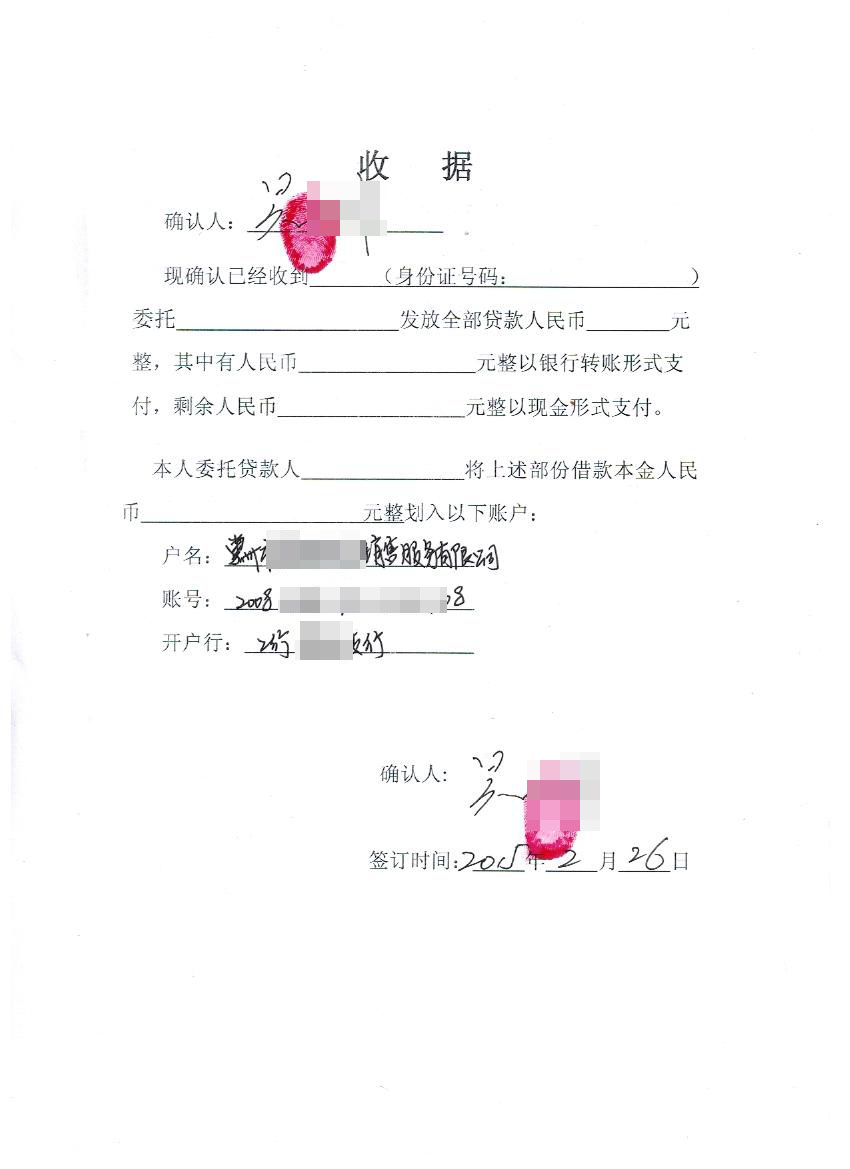 收 据
确认人：
现确认已经收到______（身份证号码：______）
委托______发放全部贷款人民币______元
整，其中有人民币______元整以银行转账形式支
付，剩余人民币______元整以现金形式支付。
本人委托贷款人______将上述部份借款本金人民
币______元整划入以下账户：
户名：销售服务有限公司
账号：2008 8
开户行：工行 支行
确认人：
签订时间：2015年2月26日